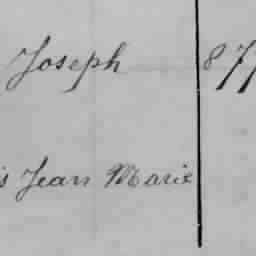 Joseph 877
s Jean Marie